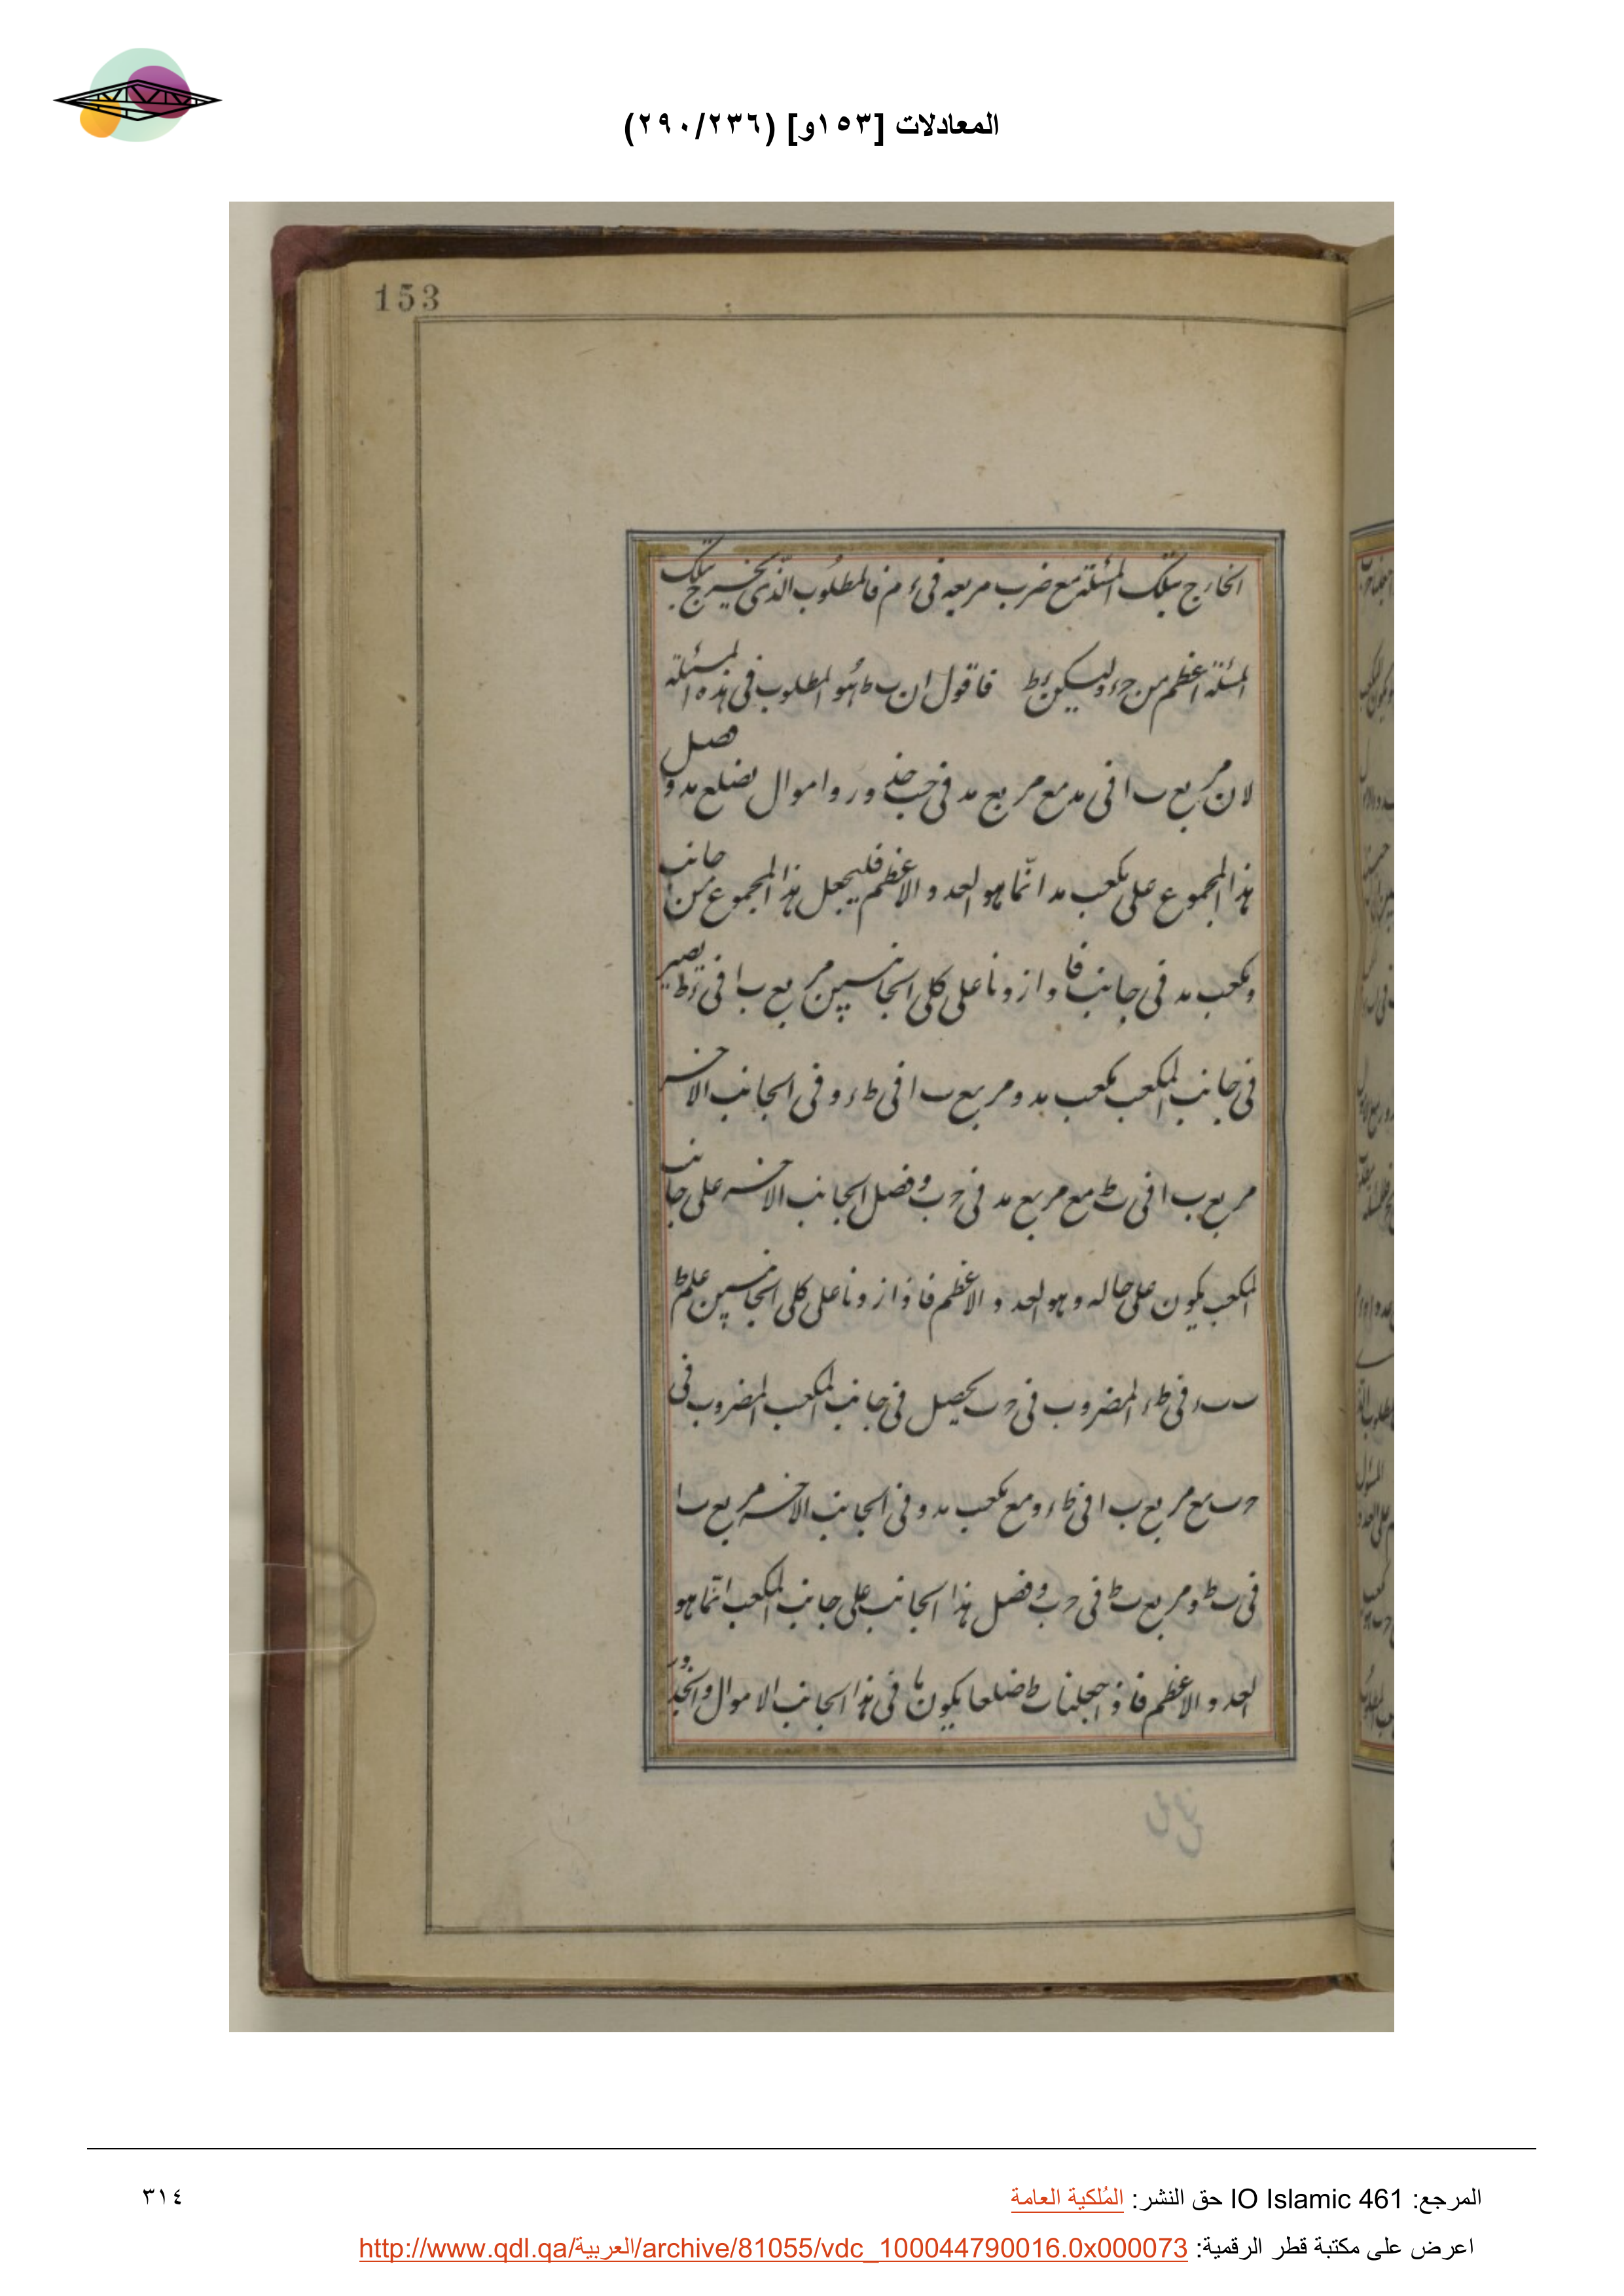 المعادلات [١٥٣و] (٢٩٠/٢٣٦)
153
الخارج بتلك المسئلة مع ضرب مربعه في ء م فالمطلوب الذي يخرج بتلك
المسئلة اعظم من حء وليكن ءط فاقول ان ب ط هو المطلوب في هذه المسئلة
لان مربع ب ا في مد مع مربع مد في حب جذور واموال بضلع مد وفصل
هذا المجموع على مكعب مد انما هو العدد الاعظم فليجعل هذا المجموع من جانب
ومكعب مد في جانب فاذا زدنا على كلى الجانبين مربع ب ا في ءط يصير
في جانب المكعب مكعب مد ومربع ب ا في طء وفي الجانب الاخر
مربع ب ا في ب ط مع مربع مد في حب وفضل الجانب الاخر على جانب
المكعب يكون على حاله وهو العدد الاعظم فاذا زدنا على كلى الجانبين علم ط
ب ء في طء المضروب في حب يحصل في جانب المكعب المضروب في
حب مع مربع ب ا في طء ومع مكعب مد وفي الجانب الاخر مربع ب ا
في ب ط ومربع ب ط في حب وفضل هذا الجانب على جانب المكعب انما هو
العدد الاعظم فاذ جعلنا ب ط ضلعا يكون ما في هذا الجانب الاموال والجذور
المرجع: IO Islamic 461 حق النشر: المُلكية العامة
٣١٤
اعرض على مكتبة قطر الرقمية: http://www.qdl.qa/العربية/archive/81055/vdc_100044790016.0x000073